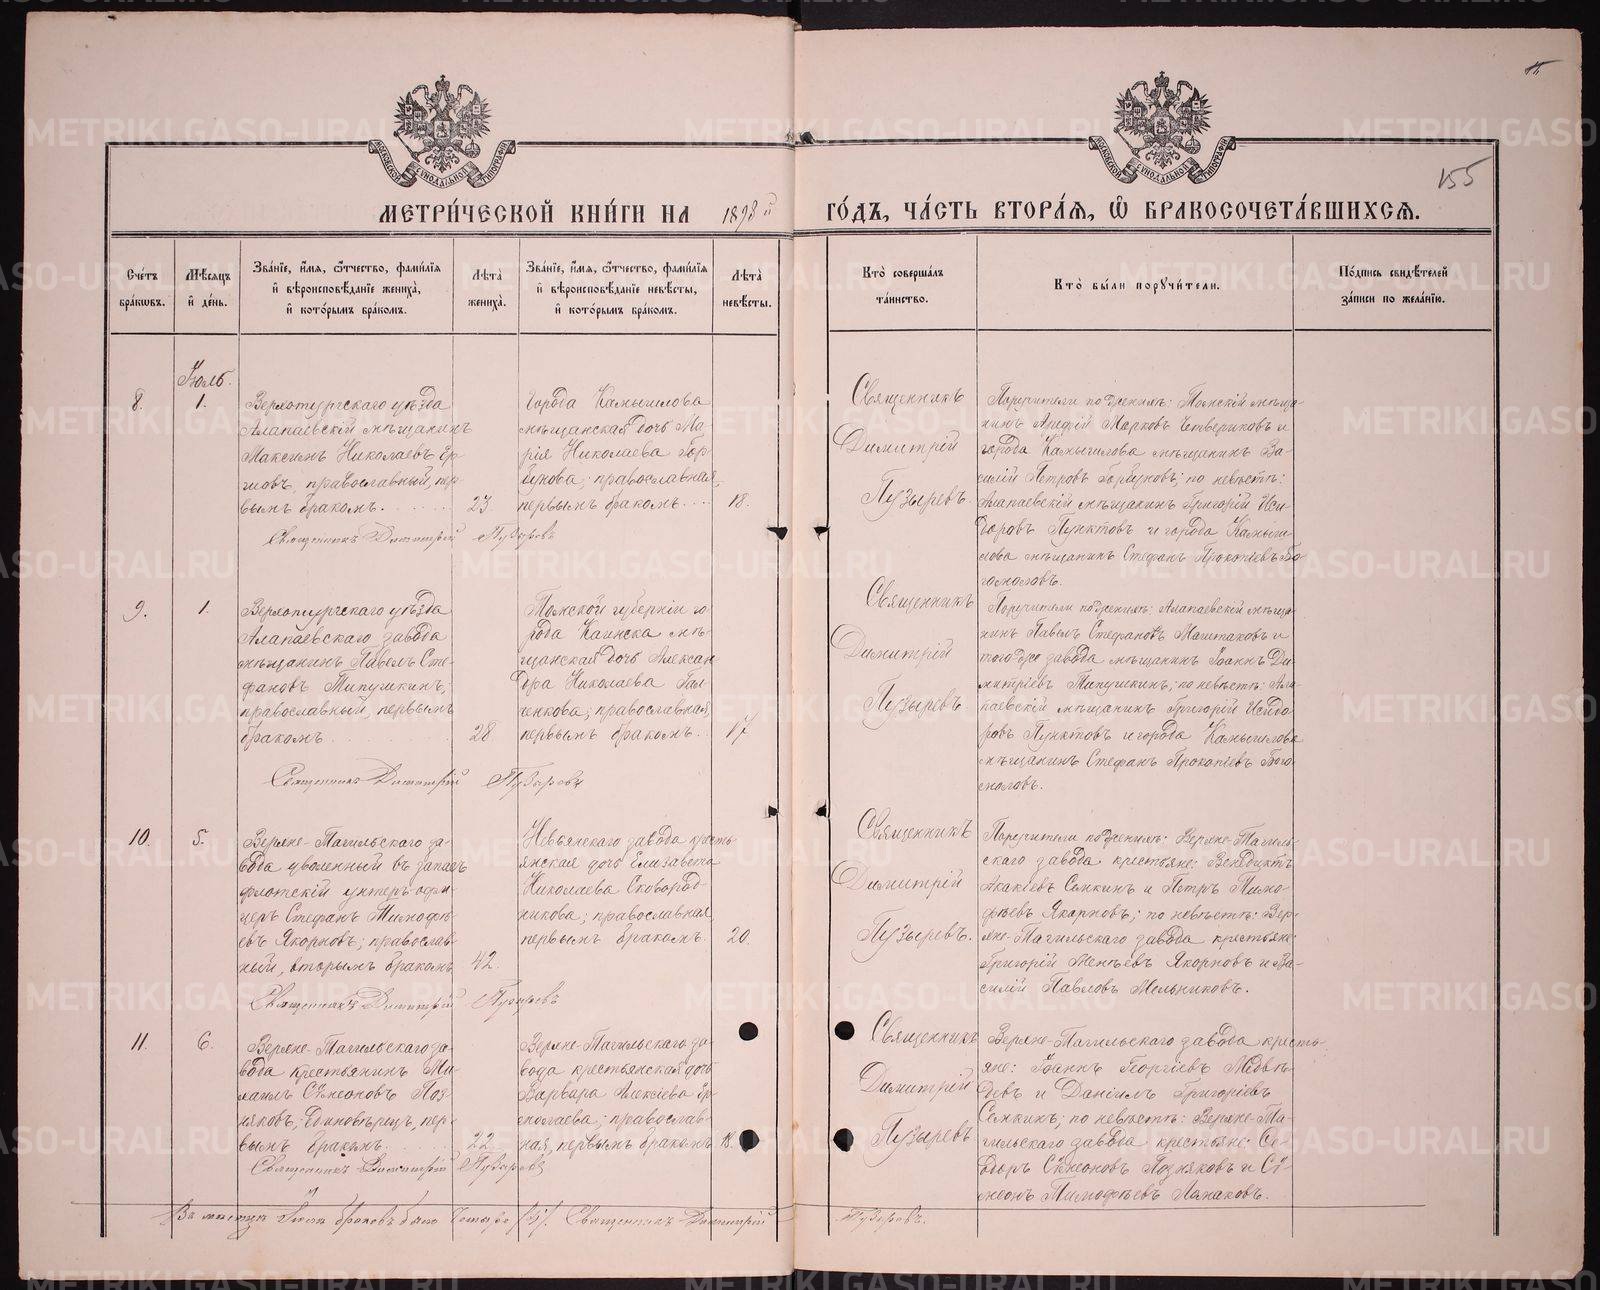 155
МОСКОВСКОЙ СУНОДАЛЬНОЙ ТИПОГРАФІИ
МОСКОВСКОЙ СУНОДАЛЬНОЙ ТИПОГРАФІИ
МЕТРИ́ЧЕСКОЙ КНИ́ГИ НА 1898й ГО́ДЪ, ЧА́СТЬ ВТОРА́Я, Ѽ БРАКОСОЧЕТА́ВШИХСЯ.
Сче́тъ
бра́ковъ.
Мѣ́сяцъ
и҆ де́нь.
Зва́нїе, и҆́мя, ѻ҆́тчество, фами́лїя
и҆ вѣроисповѣ́данїе жениха̀,
и҆ кото́рымъ бра́комъ.
Лѣ̀та
жениха̀.
Зва́нїе, и҆́мя, ѻ҆́тчество, фами́лїя
и҆ вѣроисповѣ́данїе невѣ́сты,
и҆ кото́рымъ бра́комъ.
Лѣ̀та
невѣ́сты.
Кто̀ соверша́лъ
та́инство.
Кто̀ бы́ли порꙋчи́тели.
По́дпись свидѣ́телей
за́писи по жела́нїю.
Іюль.
8.
1.
Верхотурскаго уѣзда
Алапаевскій мѣщанинъ
Максимъ Николаевъ Ер-
шовъ, православный, пер-
вымъ бракомъ.
23.
Города Камышлова
мѣщанская дочь Ма-
рія Николаева Гор-
бунова; православная,
первымъ бракомъ.
18.
Священникъ
Димитрій
Пузыревъ.
Поручители по женихѣ: Томскій мѣща-
нинъ Марковъ Четвериковъ и
города Камышлова мѣщанинъ Ва-
силій Петровъ Горбуновъ; по невѣстѣ:
Алапаевскій мѣщанинъ Григорій Иси-
доровъ Пунктовъ и города Камыш-
лова мѣщанинъ Стефанъ Прокопіевъ Бо-
гомоловъ.
Священникъ Димитрій Пузыревъ
9.
1.
Верхотурскаго уѣзда
Алапаевскаго завода
мѣщанинъ Павелъ Сте-
фановъ Типушкинъ;
православный, первымъ
бракомъ
28
Томской губерніи го-
рода Каинска мѣ-
щанская дочь Алексан-
дра Николаева Гал-
ченкова; православная,
первымъ бракомъ.
17
Священникъ
Димитрій
Пузыревъ
Поручители по женихѣ: Алапаевскій мѣща-
нинъ Павелъ Стефановъ Маштаковъ и
того-же завода мѣщанинъ Іоаннъ Ди-
митріевъ Типушкинъ; по невѣстѣ: Ала-
паевскій мѣщанинъ Григорій Исидо-
ровъ Пунктовъ и города Камышлова
мѣщанинъ Стефанъ Прокопіевъ Бого-
моловъ.
Священникъ Димитрій Пузыревъ
10.
5.
Верхне-Тагильскаго за-
вода уволенный въ запасъ
флотскій унтеръ-офи-
церъ Стефанъ Тимофѣ-
евъ Якорновъ; православ-
ный, вторымъ бракомъ
42.
Невьянскаго завода кресть-
янская дочь Елизавета
Николаева Сковород-
никова; православная,
первымъ бракомъ.
20.
Священникъ
Димитрій
Пузыревъ.
Поручители по женихѣ: Верхне-Тагиль-
скаго завода крестьяне: Венедиктъ
Акакіевъ Семкинъ и Петръ Тимо-
фѣевъ Якорновъ; по невѣстѣ: Вер-
хне-Тагильскаго завода крестьяне:
Григорій Якорновъ и Ва-
силій Павловъ Мельниковъ.
Священникъ Димитрій Пузыревъ
11.
6.
Верхне-Тагильскаго за-
вода крестьянинъ Ми-
хаилъ Сѵмеоновъ Поз-
няковъ, Единовѣрецъ, пер-
вымъ бракомъ.
22.
Верхне-Тагильскаго за-
вода крестьянская дочь
Варвара Алексіева Ер-
молаева; православ-
ная, первымъ бракомъ
18
Священникъ
Димитрій
Пузыревъ
Верхне-Тагильскаго завода кресть-
яне: Іоаннъ Георгіевъ Медвѣ-
девъ и Даніилъ Григоріевъ
Семкинъ; по невѣстѣ: Верхне-Та-
гильскаго завода крестьяне: Ѳе-
доръ Сѵмеоновъ Позняковъ и Сѵ-
меонъ Тимофѣевъ Ламаковъ.
Священникъ Димитрій Пузыревъ
Въ мѣсяцѣ Іюлѣ браковъ было Четыре (4). Священникъ Димитрій Пузыревъ.